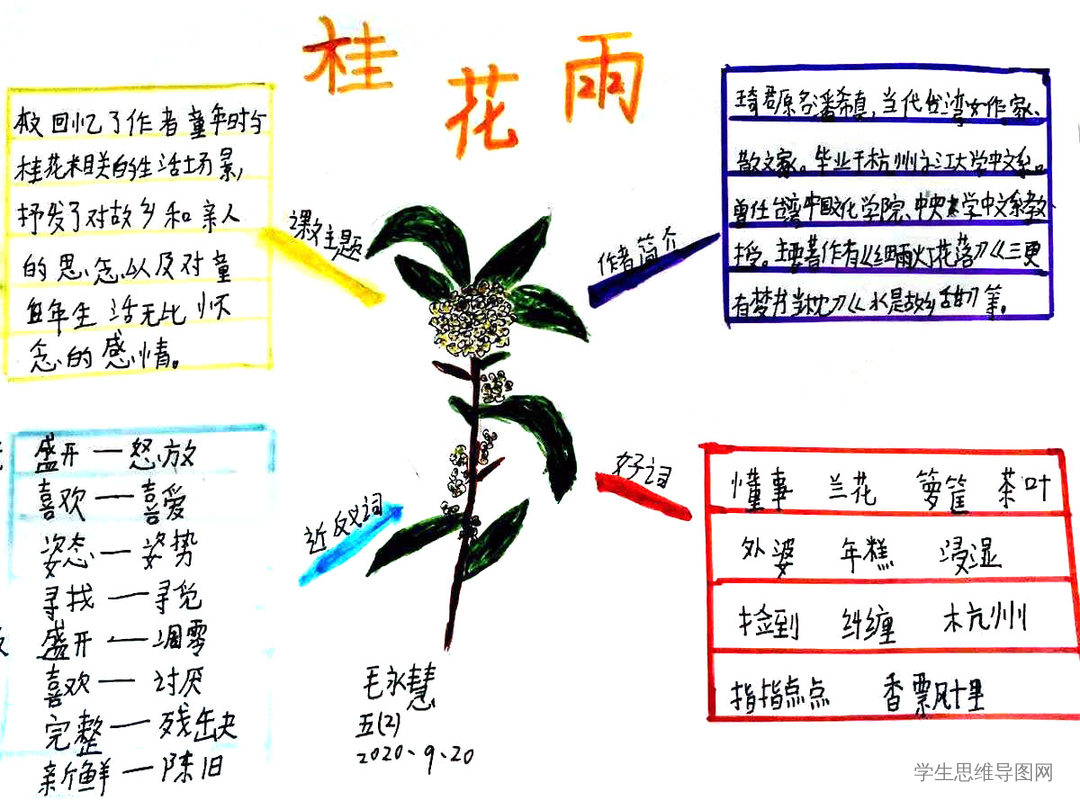 桂花雨
校回忆了作者童年时与
桂花相关的生活场景,
抒发了对故乡和亲人
的思念以及对童
年生活无比怀
念的感情。
课文主题
作者简介
琦君原名潘希真,当代台湾女作家、
散文家。毕业于杭州之江大学中文系。
曾任台湾中国文化学院、中央大学中文系教
授。主要著作有《红雨灯花落》《三更
有梦书当枕》《水是故乡甜》等。
近反义词
盛开—怒放
喜欢—喜爱
姿态—姿势
寻找—寻觅
盛开—凋零
喜欢—讨厌
完整—残缺
新鲜—陈旧
好词
懂事 兰花 箩筐 茶叶
外婆 年糕 浸湿
捡到 纠缠 杭州
指指点点 香飘十里
毛永慧
五(2)
2020、9.20
学生思维导图网